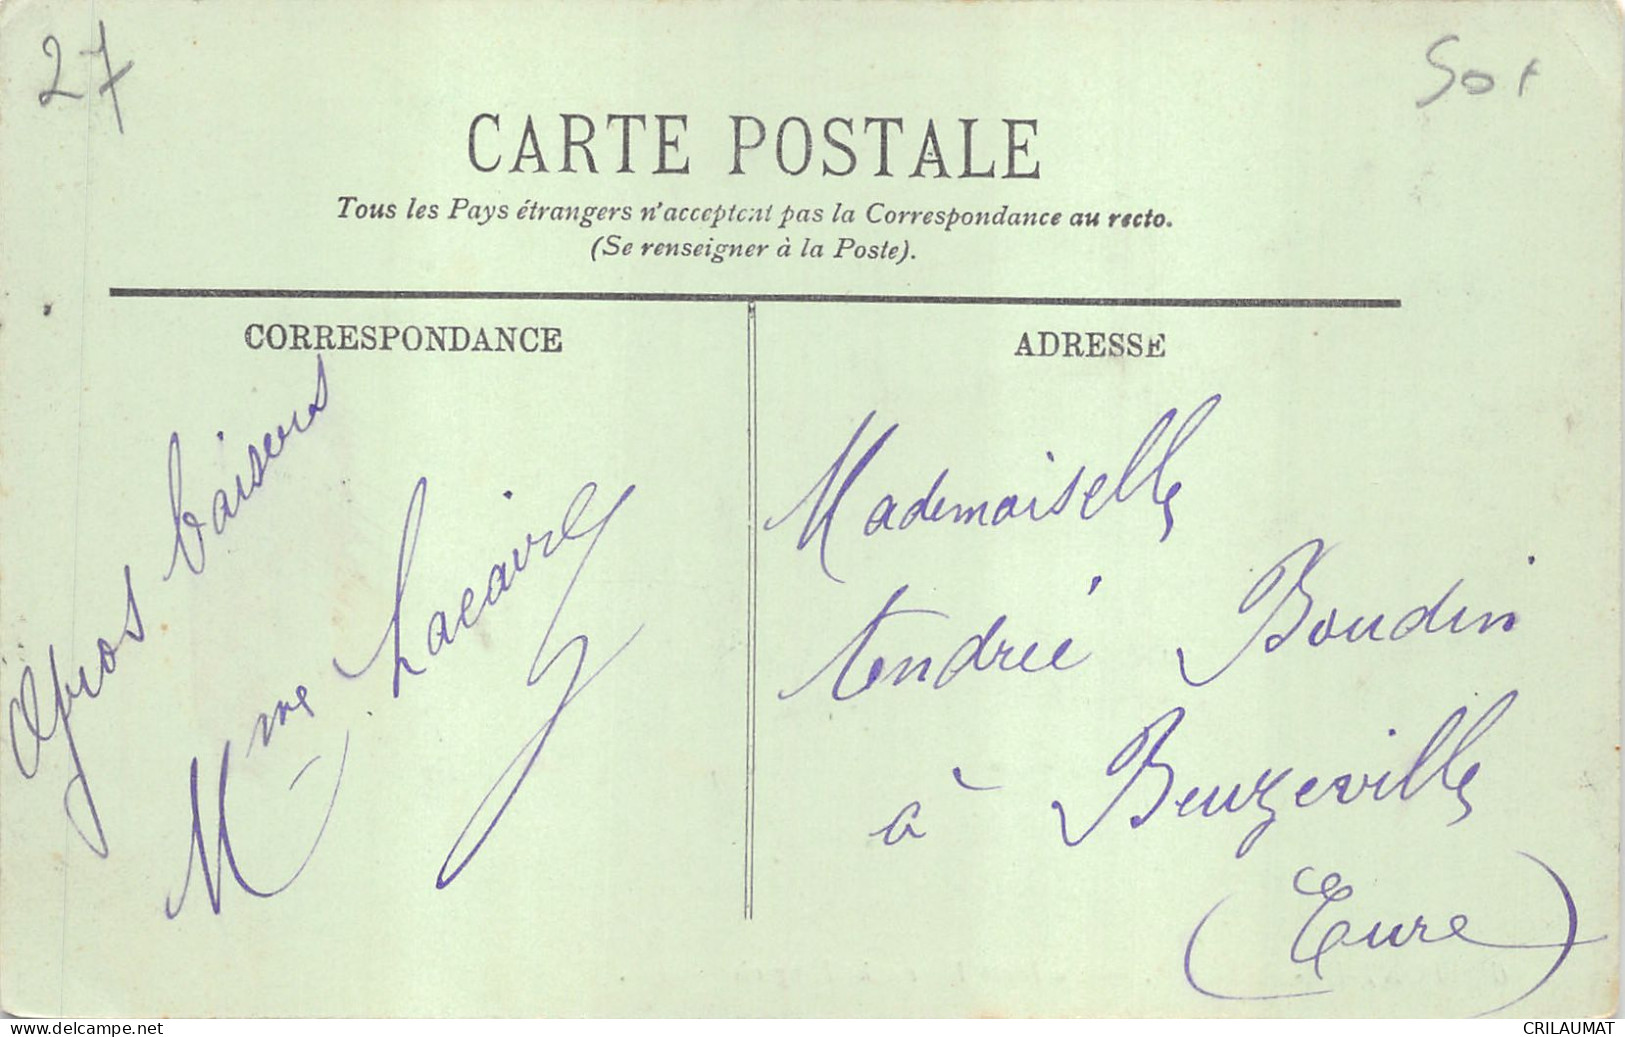 27
50 r
CARTE POSTALE
Tous les Pays étrangers n'acceptent pas la Correspondance au recto.
(Se renseigner à la Poste).
CORRESPONDANCE
Gros baisers
Mme
ADRESSE
Mademoiselle
Andrée Boudin
à Beuzeville
(Eure)
6-BARON-27-AM53-VP00-015
CRILAUMAT